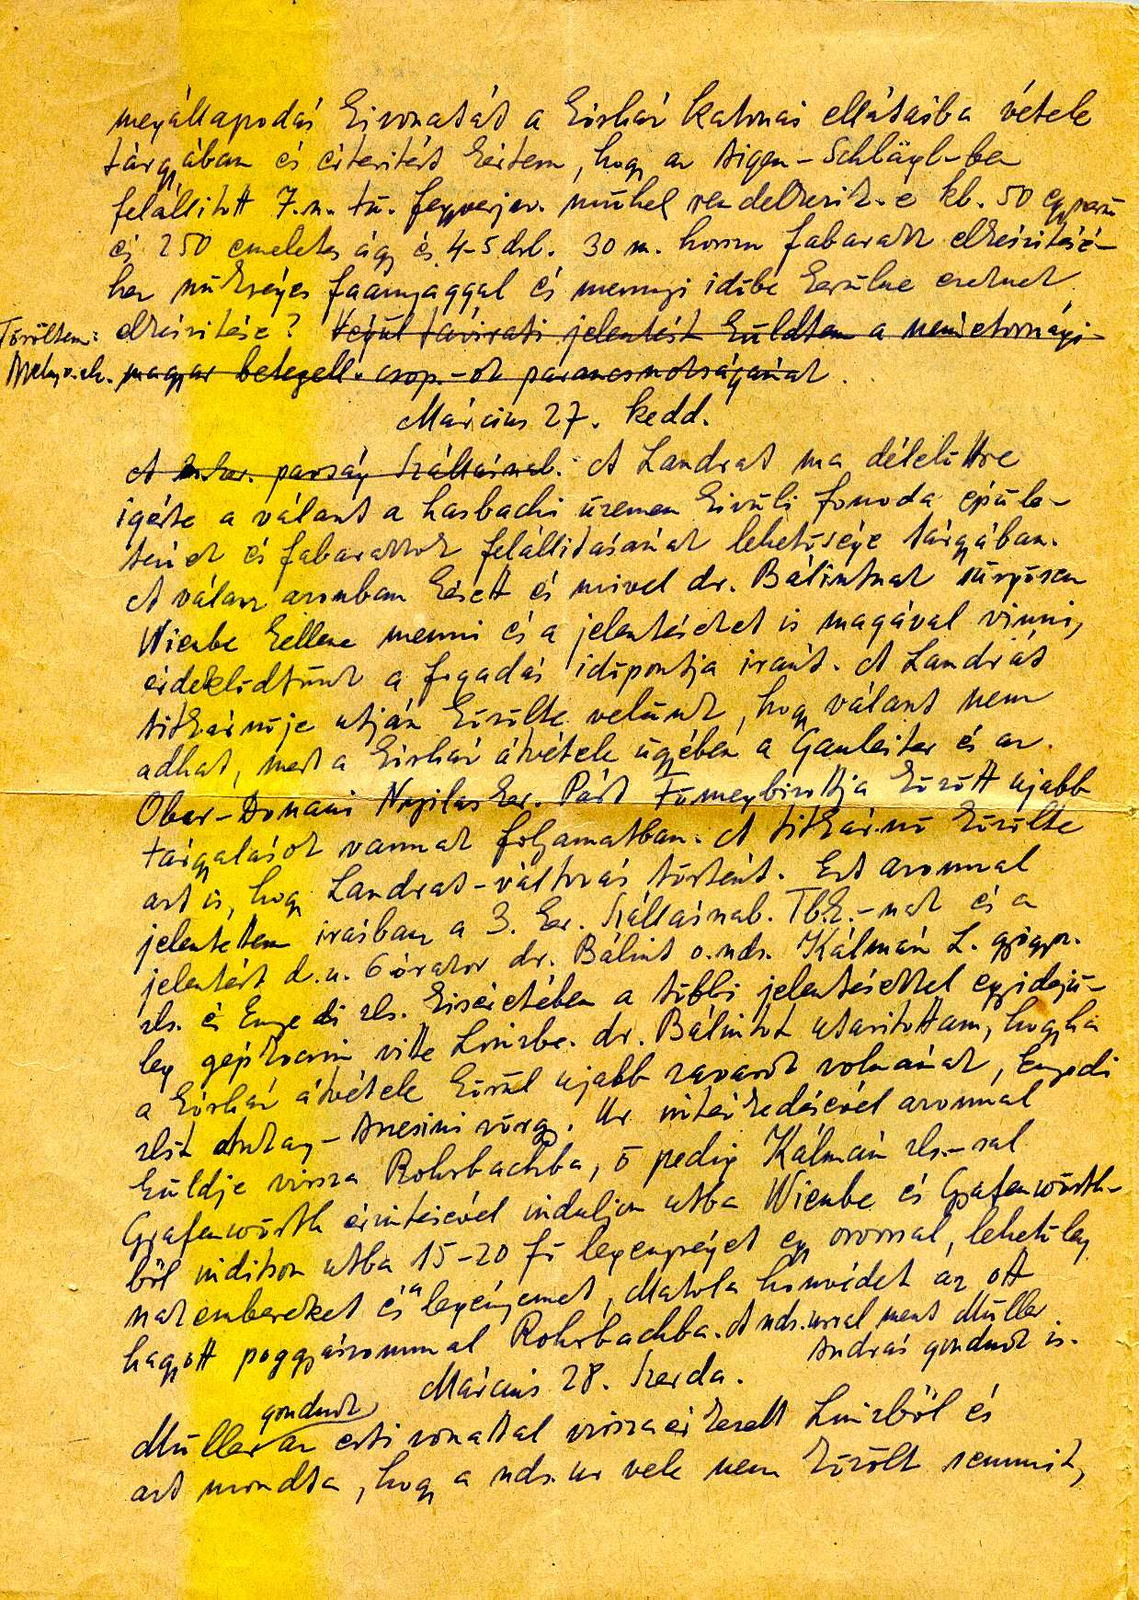 megállapodás kivonatát a kórház katonai ellátásba vétele
tárgyában és értesítést kértem, hogy az Aigen-Schlägl-ben
felállított 7. n. tü. fegyverjav. műhel rendelkezik-e kb. 50 egyszerű
és 250 emeletes ágy és 4-5 drb. 30 m. hosszu fabarakk elkészitésé-
hez szükséges faanyaggal és mennyi időbe kerülne ezeknek
elkészitése? Végül távirati jelentést küldtem a németországi
Töröltem:
magyar betegell. csop.-ok parancsnokságának.
Március 27. kedd.
A parság Szállásmab. A Landrat ma délelőttre
igérte a választ a hasbachi üzemen kivüli fonoda épüle-
tének és fabarakkok felállitásának lehetősége tárgyában.
A válasz azonban késett és mivel dr. Bálintnak sürgősen
Wienbe kellene menni és a jelentéseket is magával vinni,
érdeklődtünk a fogadás időpontja iránt. A Landrát
titkárnője utján közölte velünk, hogy választ nem
adhat, mert a kórház átvétele ügyében a Gauleiter és az
Ober-Donaui Nyilasker. Párt Főmegbizottja között ujabb
tárgyalások vannak folyamatban. A titkárnő közölte
azt is, hogy Landrat-változás történt. Ezt azonnal
jelentettem irásban a 3. ker. Szállásmab. Tbk.-nak és a
jelentést d.u. 6 órakor dr. Bálint o.nds. Kálmán L. gyógysz.
zls. és Engedi zls. kiséretében a többi jelentésekkel egyidejü-
leg gépkocsin vitte Linzbe. dr. Bálintot utasitottam, hogy ha
a kórház átvétele körül ujabb zavarok volnának, Engedi
zlst vörgy. Ur intézkedésével azonnal
küldje vissza Rohrbachba, ő pedig Kálmán zls.-sal
Grafenwörth érintésével induljon utba Wienbe és Grafenwörth-
ből inditson utba 15-20 fő legénységet egy orvossal, lehetőleg
szakembereket és a legényemet, Matola honvédet az ott
hagyott poggyászommal Rohrbachba. A nds. urral ment Müller
András gondnok is.
Március 28. Szerda.
gondnok
Müller az esti vonattal visszaérkezett Linzből és
azt mondta, hogy a nds. ur vele nem közölt semmit,